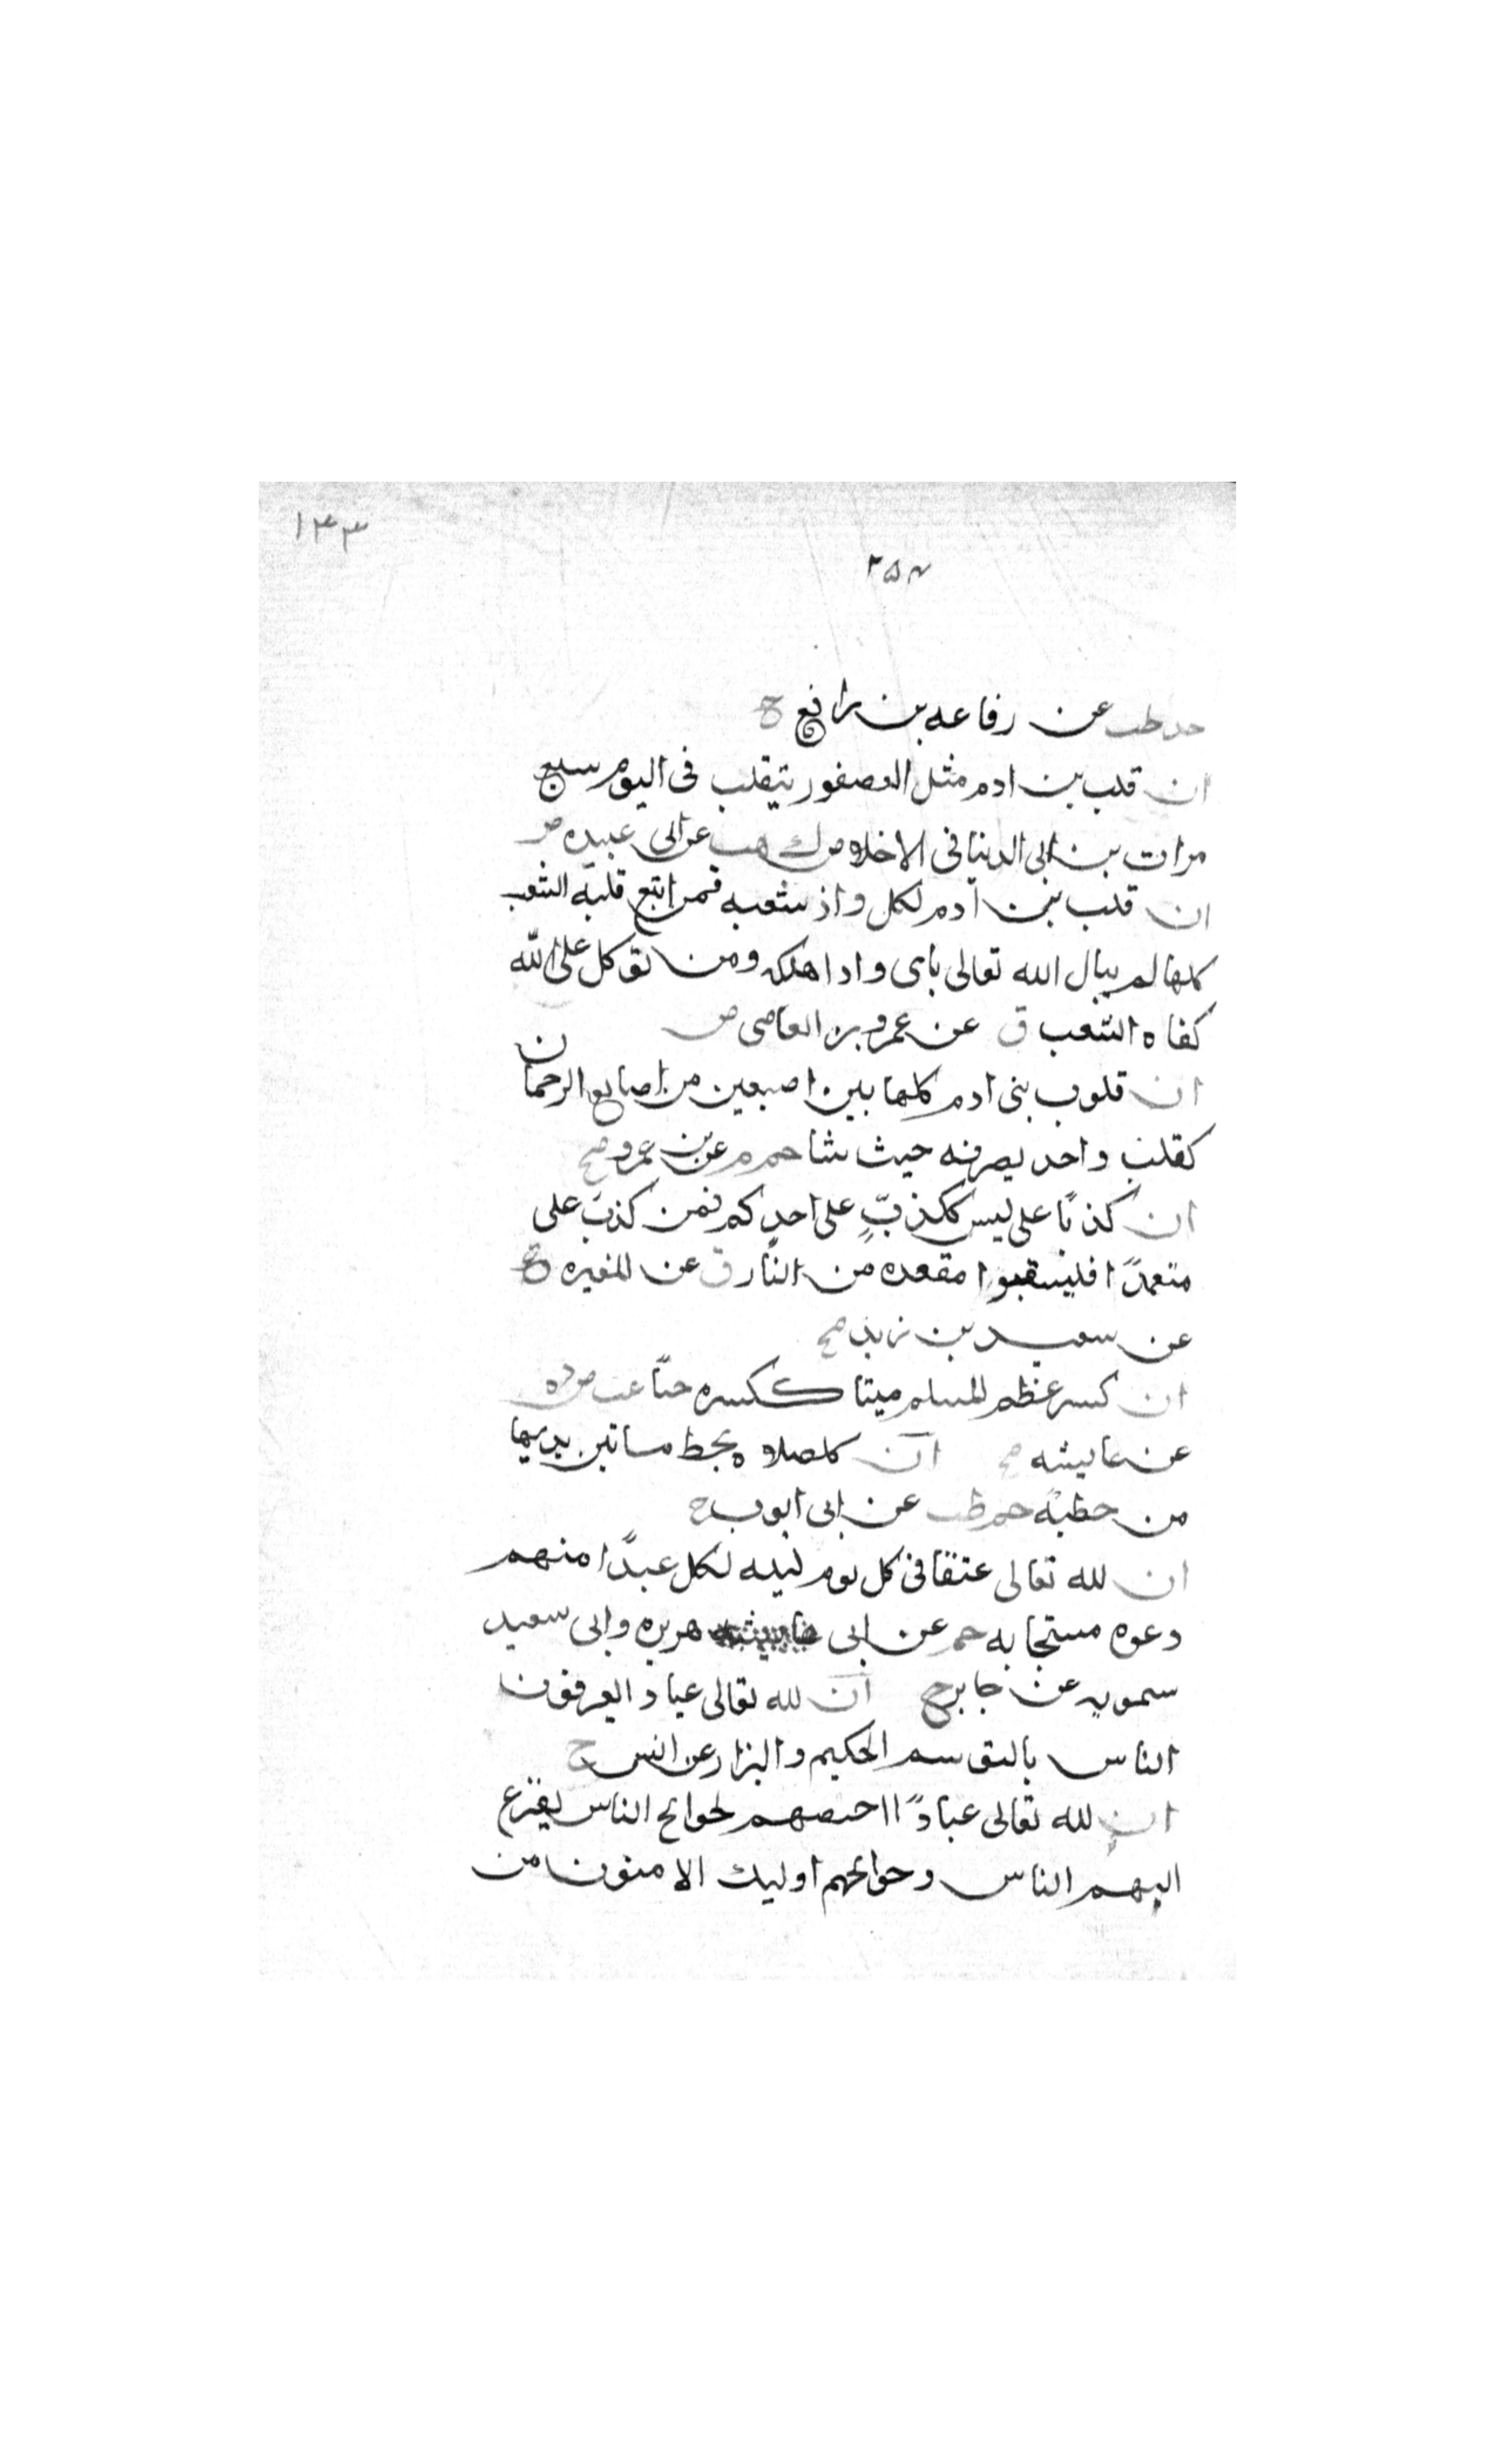 ١٣٣
٢٥٧
حد طب عن رفاعه بن رافع ح
ان قلب بن ادم مثل العصفور يتقلب فى اليوم سبع
مرات بن ابى الدنيا فى الاخلاص ك هب عن ابى عبيده ض
ان قلب بن ادم لكل واد شعبه فمن اتبع قلبه الشعب
كلها لم يبال الله تعالى باى واد اهلكه ومن توكل على الله
كفاه الشعب ق عن عمرو بن العاصى ض
ان قلوب بنى ادم كلها بين اصبعين من اصابع الرحمان
كقلب واحد يصرفه حيث شا حم م عن بن عمرو صح
ان كذبًا على ليس ككذبٍ على احدكم فمن كذب على
متعمدًا فليتبوا مقعده من النار ق عن المغيره ع
عن سعيد بن زيد صح
ان كسر عظم المسلم ميتا ككسره حيًا عب ص د ه
عن عايشه صح ان كل صلاه تحط ما بين يديها
من خطية حم طب عن ابى ايوب ح
ان لله تعالى عتقا فى كل يوم ليله لكل عبدًا منهم
دعوه مستجابه حم عن ابى هريره وابى سعيد
سمويه عن جابر صح ان لله تعالى عبادا يعرفون
الناس بالتوسم الحكيم والبزار عن انس ح
ان لله تعالى عبادًا اختصهم لحوائج الناس يفزع
اليهم الناس وحوائجهم اوليك الامنون من